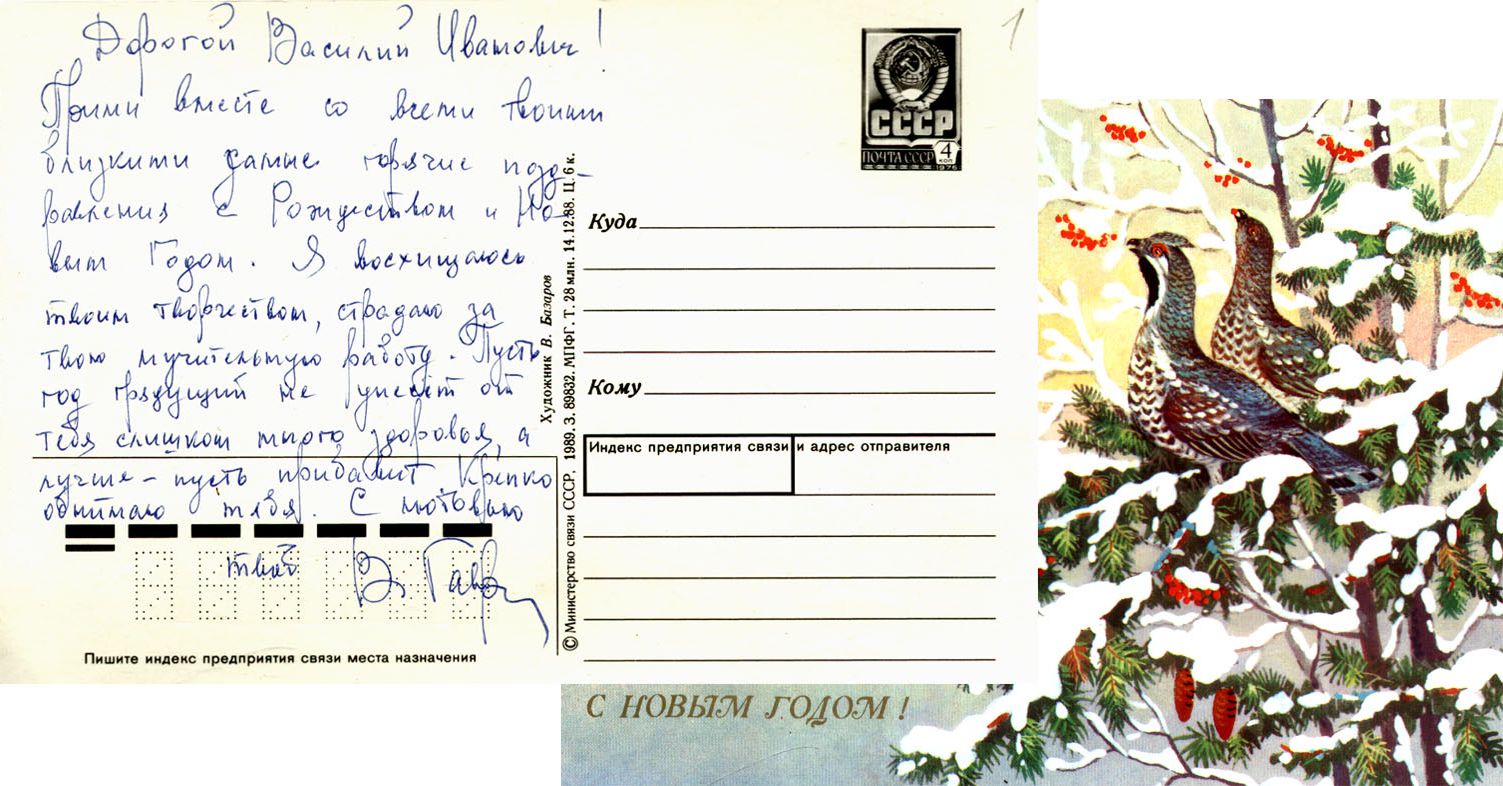 Дорогой Василий Иванович!
Прими вместе со всеми твоими
близкими самые горячие позд-
равления с Рождеством и Но-
вым Годом. Я восхищаюсь
твоим творчеством, страдаю за
твою мучительную работу. Пусть
год грядущий не унесёт от
тебя слишком много здоровья, а
лучше – пусть прибавит. Крепко
обнимаю тебя. С любовью
твой В. Гавр
1
СССР
ПОЧТА СССР 4 КОП
1976
Куда
Кому
Индекс предприятия связи и адрес отправителя
Художник В. Базаров
© Министерство связи СССР, 1989. З. 89832. МПФГ. Т. 28 млн. 14.12.88. Ц. 6 к.
Пишите индекс предприятия связи места назначения
С НОВЫМ ГОДОМ!